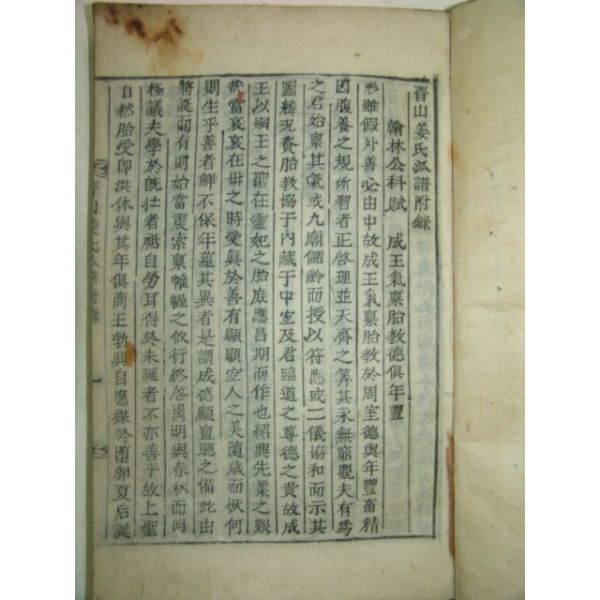 晋山姜氏派譜附錄
翰林公科賦 成王氣稟胎教德俱年豐
形雖假外善必由中故成王氣稟胎教於周室德與年豐畜精
因腹養之規所習者正啓理並天齊之筭其永無窮觀夫有爲
之君始稟其氣或九廟儲齡而授以符應或二儀協和而示其
圖籍况賚胎教協于內藏于中室及君臨道之尊德之貴故成
王以嗣王之聖在靈妃之胎底應昌期而作也紹興先業之艱
哉當哀哀在母之時受異於善有顯顯空人之美隨歲而恢何
則生乎善者鮮不保年蘊其異者是謂成德顧亶聰之備此由
將誕而有則始當震索稟帷幄之攸行終啓
明與春秋而
極議夫學於旣壯者祗自勞耳得於未誕者不亦善乎故上聖
自然胎受卽洪休與其年俱商王勃興自應禖於
卵夏后誕